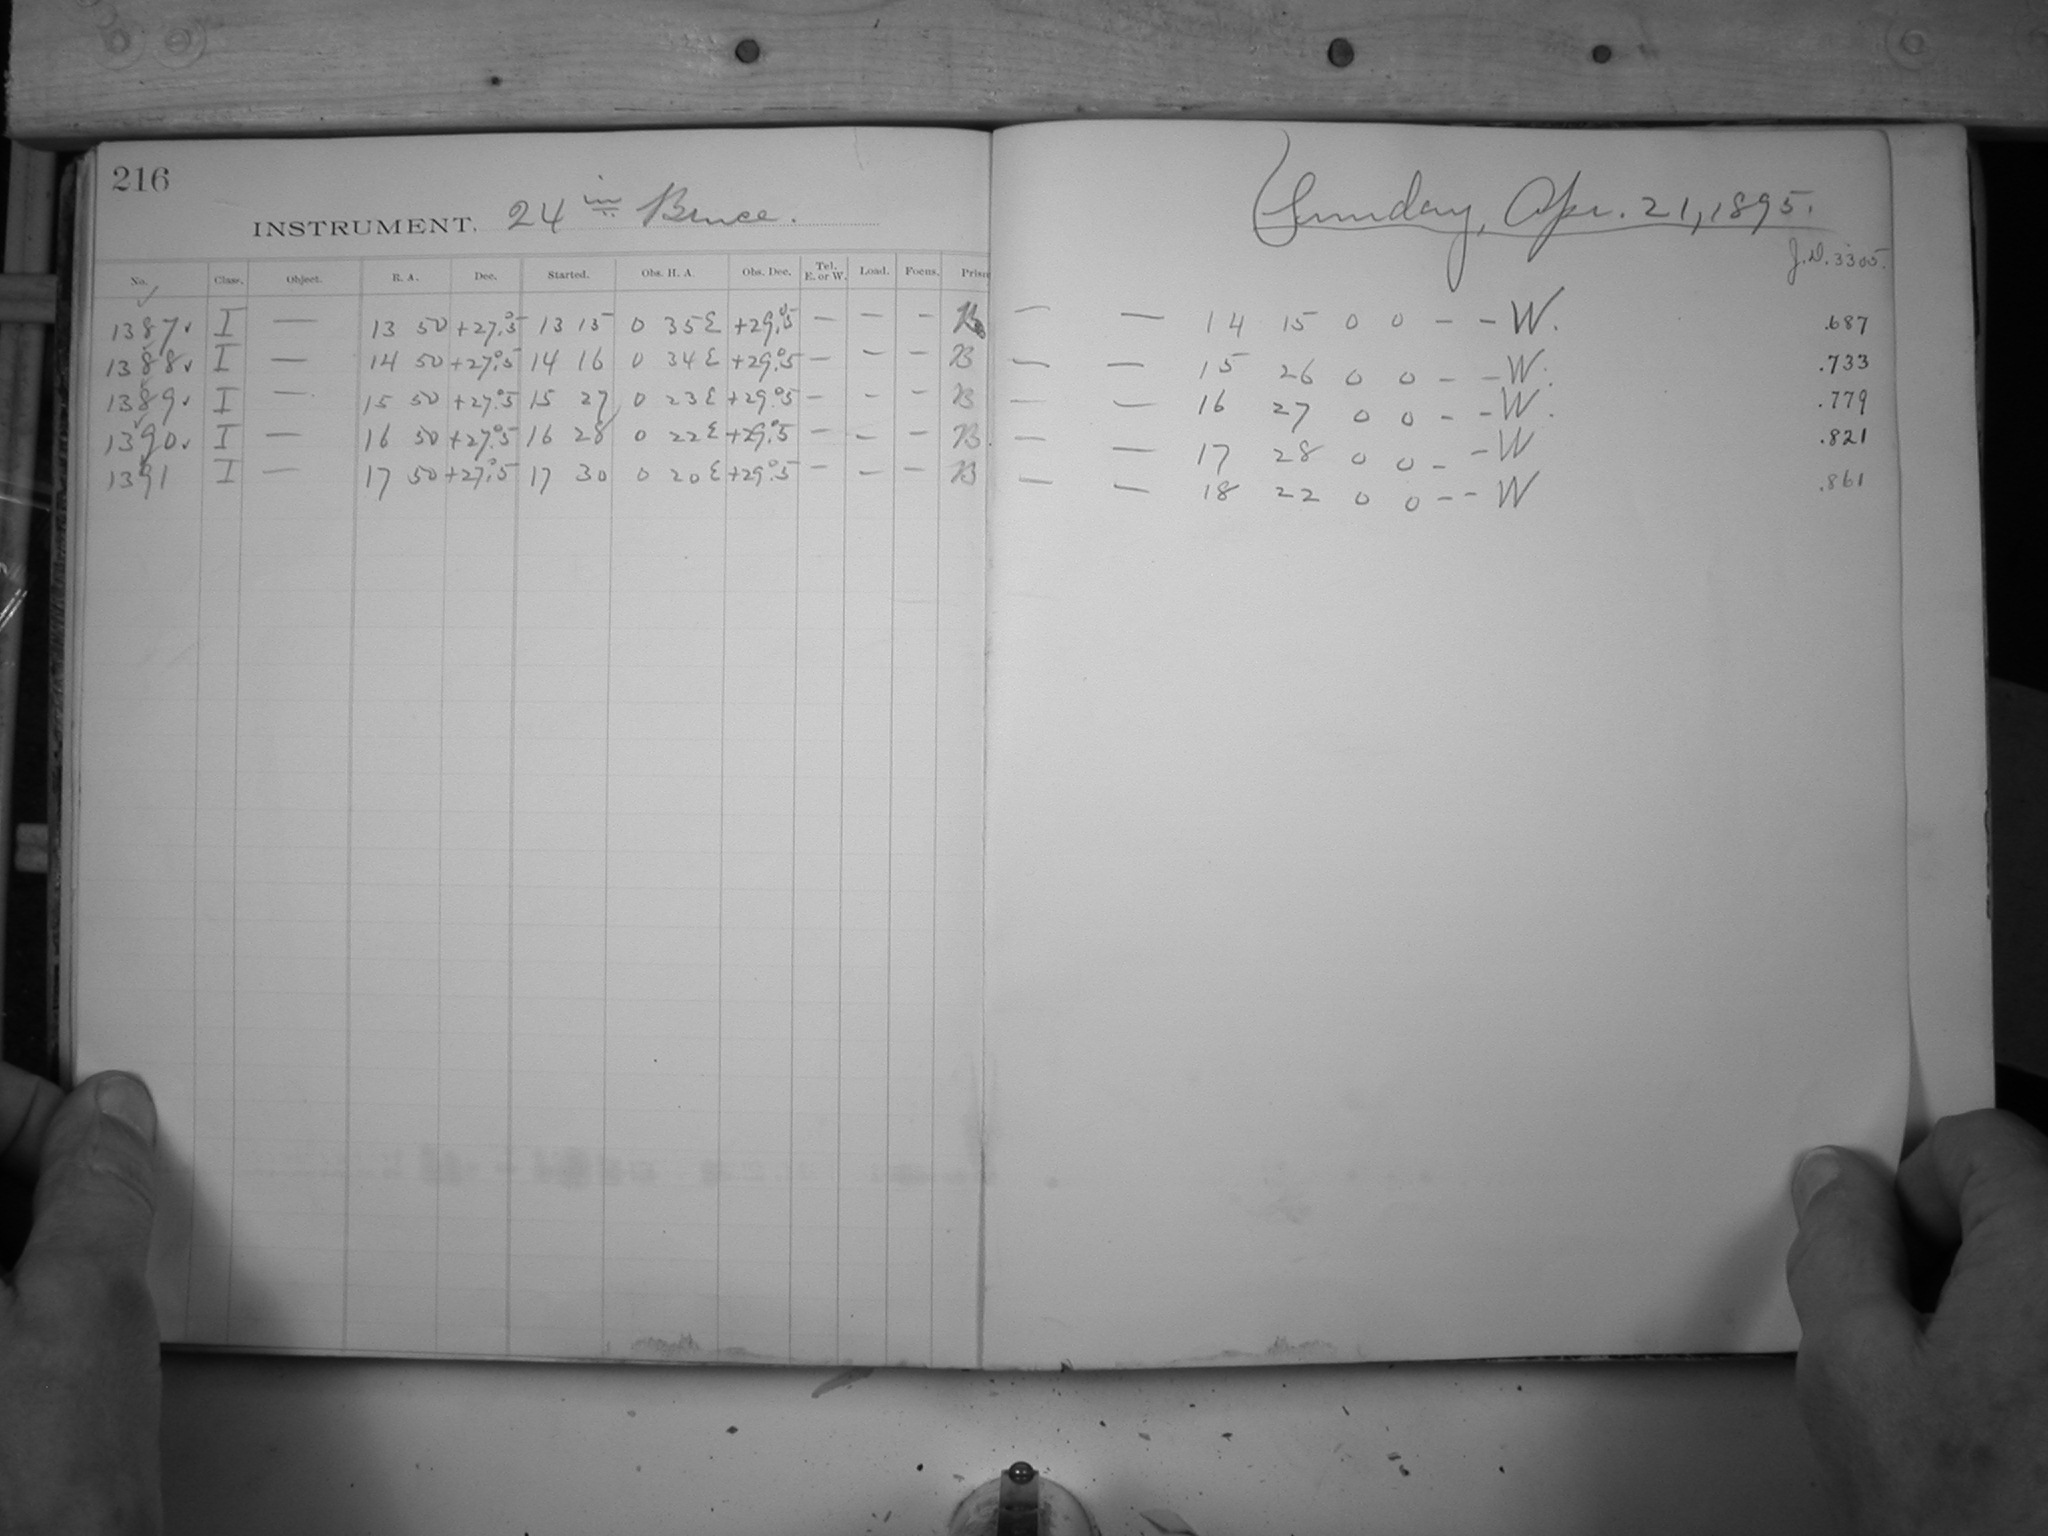 216
INSTRUMENT. 24 in Bruce.
Sunday, Apr. 21, 1895.
J.D. 3305.
No. Class. Object. R. A. Dec. Started. Obs. H. A. Obs. Dec. Tel. E. or W. Load. Focus. Prism
1387 I — 13 50 +27.°5 13 15 0 35 E +29.°5 — — — B — — 14 15 0 0 - - W. .687
1388 I — 14 50 +27.°5 14 16 0 34 E +29.°5 — — — B — — 15 26 0 0 - - W. .733
1389 I — 15 50 +27.°5 15 27 0 23 E +29.°5 — - - B — — 16 27 0 0 - - W. .779
1390 I — 16 50 +27.°5 16 28 0 22 E +29.°5 — - — B — — 17 28 0 0 - - W .821
1391 I — 17 50 +27.°5 17 30 0 20 E +29.°5 — — — B — — 18 22 0 0 - - W .861